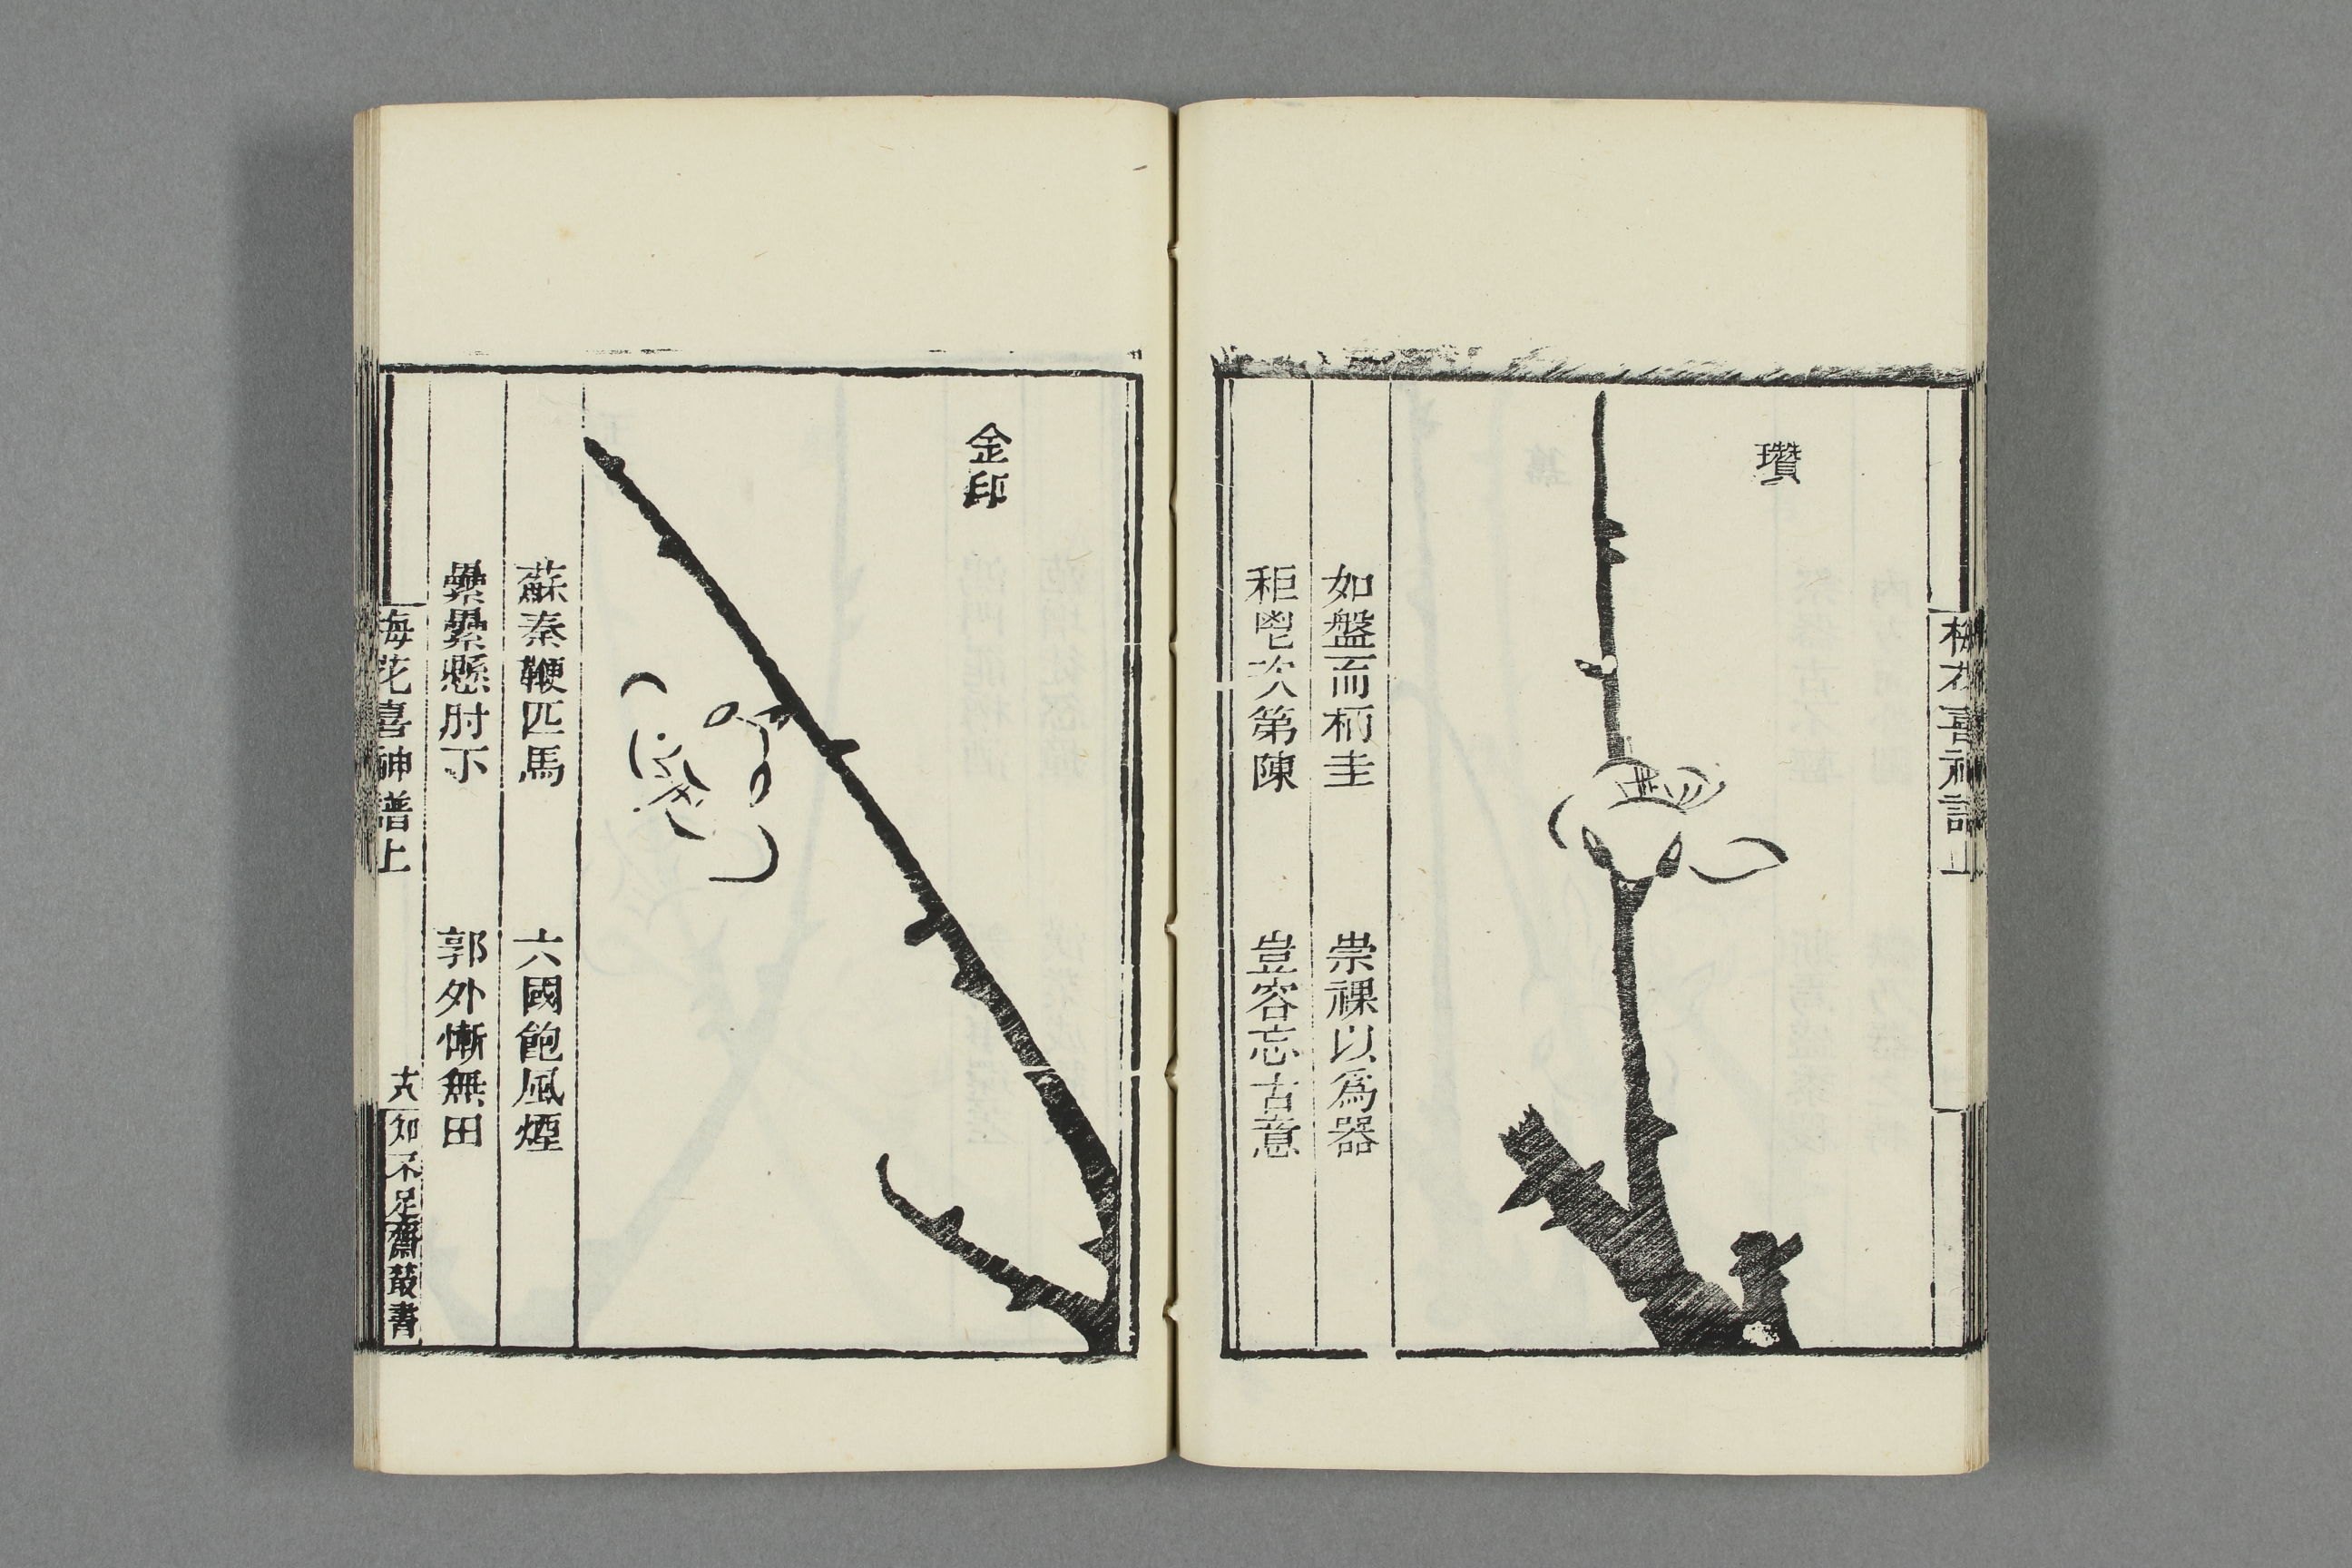 梅花喜神譜上
瓚
如盤而柄圭　祟祼以爲器
秬鬯次第陳　豈容忘古意
金印
蘇秦鞭匹馬　六國飽風煙
纍纍懸肘下　郭外慚無田
梅花喜神譜上
十八
知不足齋叢書